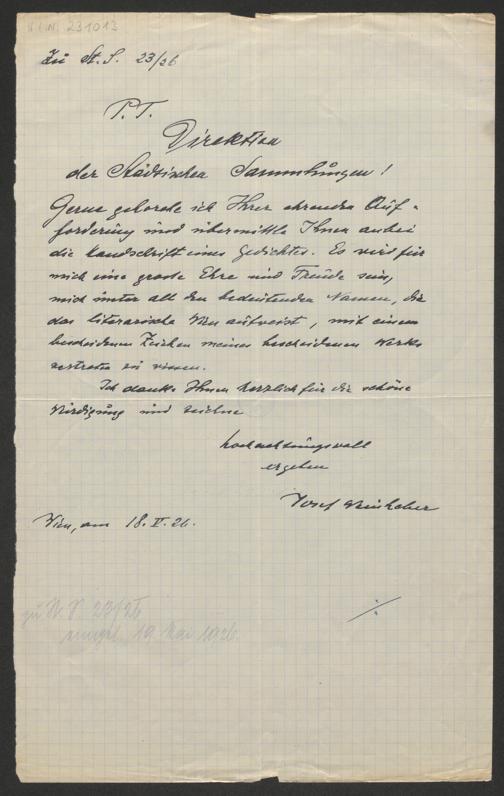 H.I.N. 231013
Zu St. S. 23/26
P. T.
Direktion
der Städtischen Sammlungen!
Gerne gehorche ich Ihrer ehrenden Auf-
forderung und übermittle Ihnen anbei
die Handschrift eines Gedichtes. Es wird für
mich eine große Ehre und Freude sein,
mich unter all den bedeutenden Namen, die
das literarische Wien aufweist, mit einem
bescheidenen Zeichen meines bescheidenen Werks
vertreten zu wissen.
Ich danke Ihnen herzlich für die schöne
Würdigung und zeichne
hochachtungsvoll
ergeben
Josef
Wien, am 18. V. 26.
zu St. S. 23/26
eingel. 19. Mai 1926.